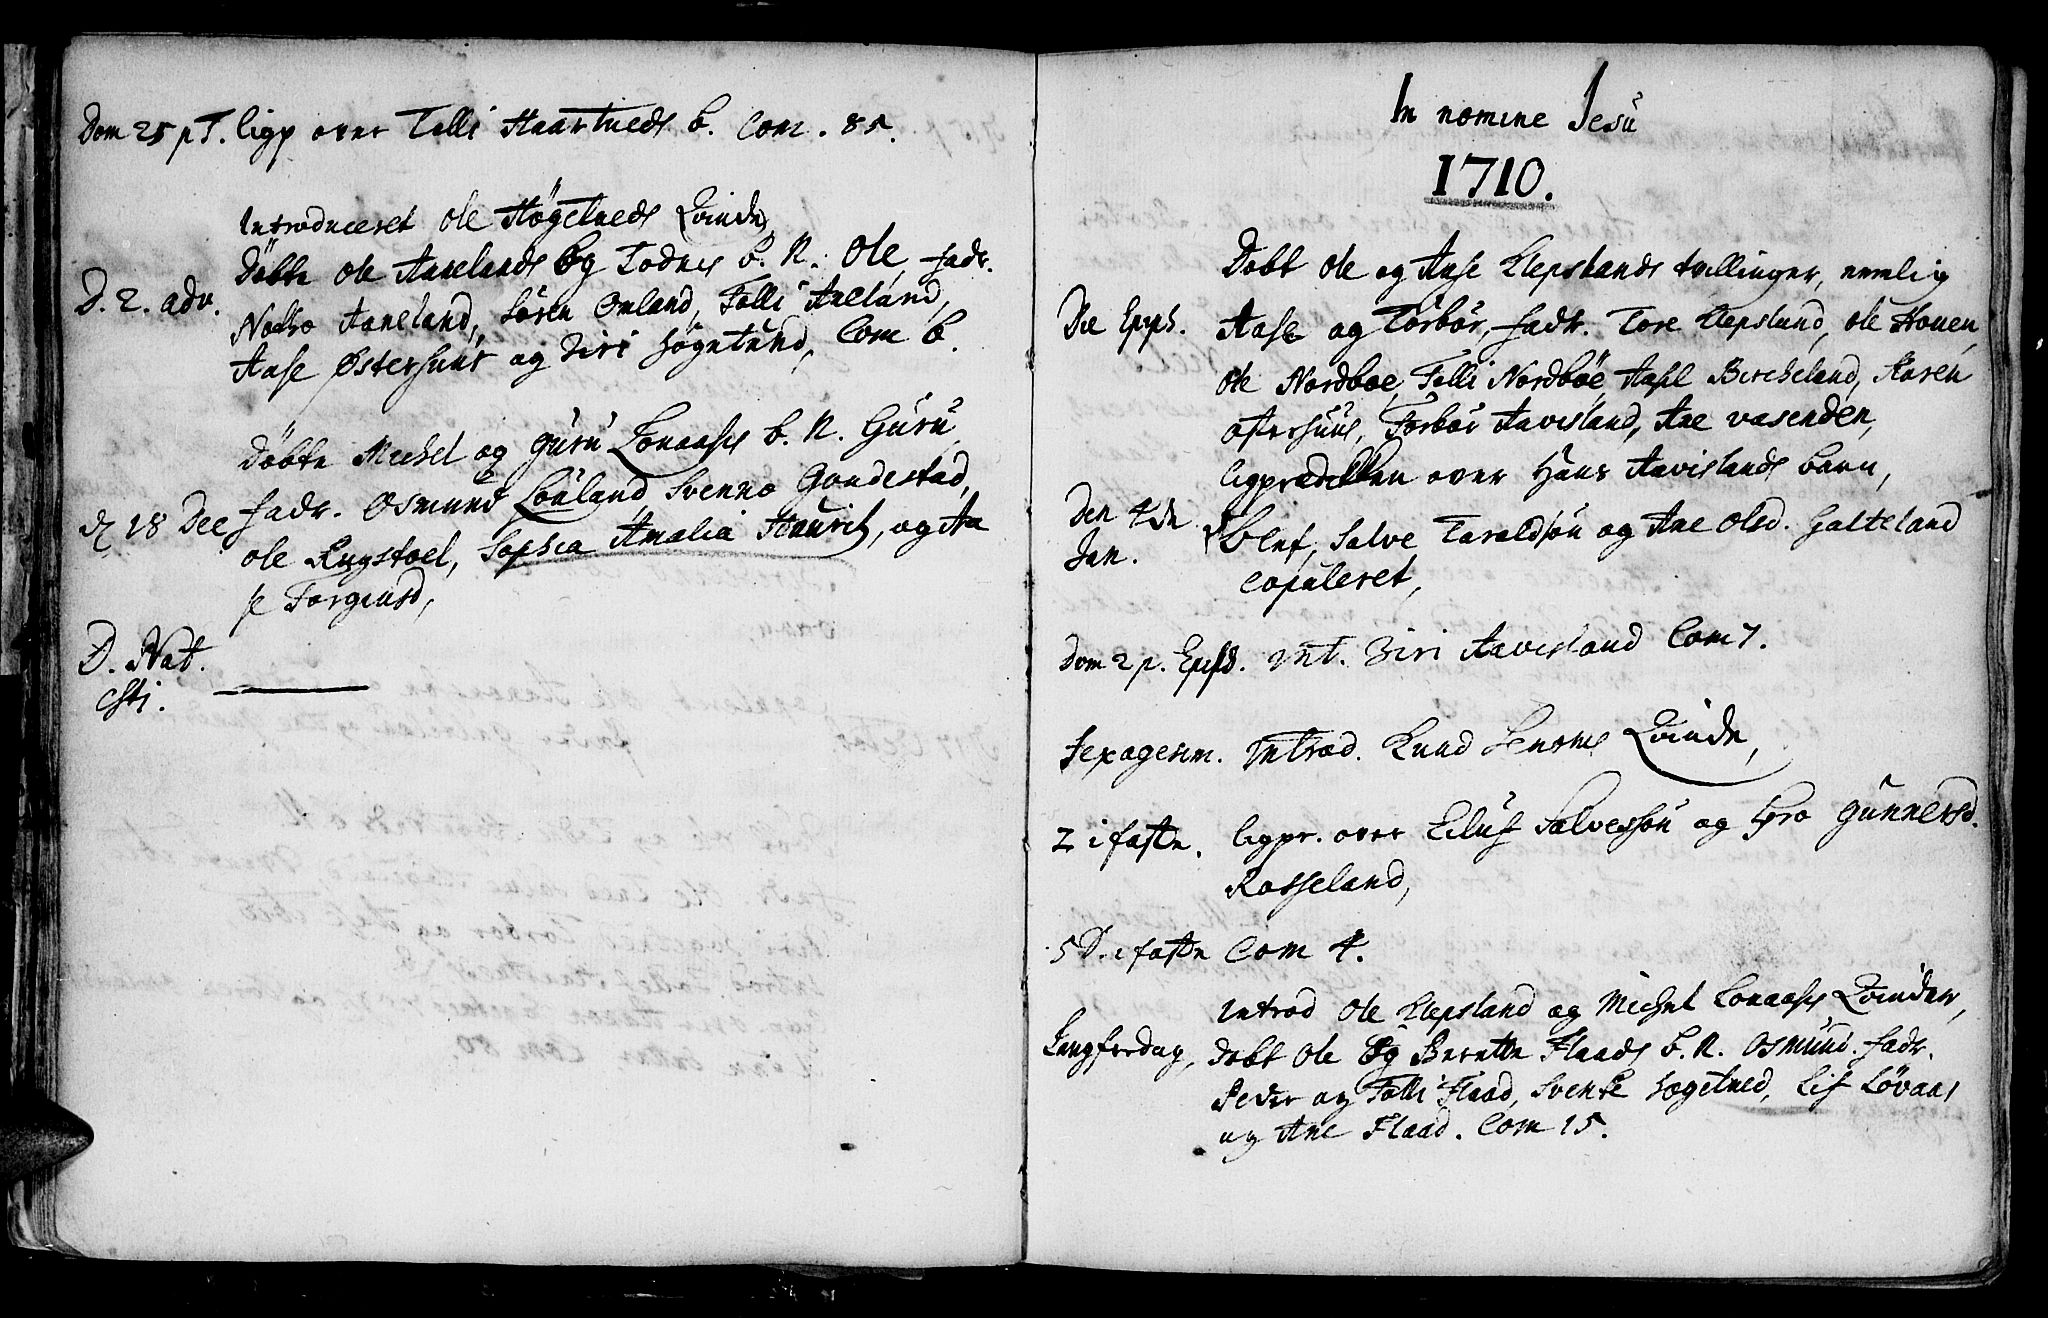 Dom 25 p T. ligp over Tolli Haartveds b. Com. 85.
Introduceret Ole Høgetveds Qvinde,
Døbte Ole Aanelands og Todnes b. N. Ole, fadr.
D. 2. adv.
Aaneland, Søren Omland, Tolli Aaneland,
Aase Østerhuus og Siri Høgetund, Com 6.
Døbte Michel og Guru Lonaases b. N. Guru
D 18 Dec
fadr. Osmund Lonland, Svenno Gondestad,
Ole Rugstoel, Sophia Amalia Hauritz, og Aa
se Torgiusd,
D. Nat.
Chti.
In nomine Jesu
1710.
Døbt Ole og Aase Klepslands tvillinger, nemlig
Die Epph.
Aase og Torbør, fadr. Tore Klepsland, Ole Houen,
Ole Nordbøe, Tolli Nordbøe, Aase Bircheland, Karen
Osterhuus, Torbør Aavisland, Ane vasenden,
ligprædikken over Hans Aavislands barn,
Den 4de
Jan.
Blef, Salve Taraldsøn og Ane Olsd. Galteland
Copuleret,
Dom 2 p. Epph. Int. Siri Aavisland Com 7.
Sexagesim. Introd. Knud Senoms Qvinde,
2 i faste. ligpr. over Eiluf Salvessøn og Gro Gunnersd.
Rosseland,
5 D. i faste Com 4.
Introd Ole Klepsland og Michel Lonaases Qvinder,
Langfredag, Døbt Ole og Berette Flaads b. N. Osmund. fadr.
Peder og Tolli Flaad, Svenke Høgetved, Lif Løvaas
og Ane Flaad. Com 15.